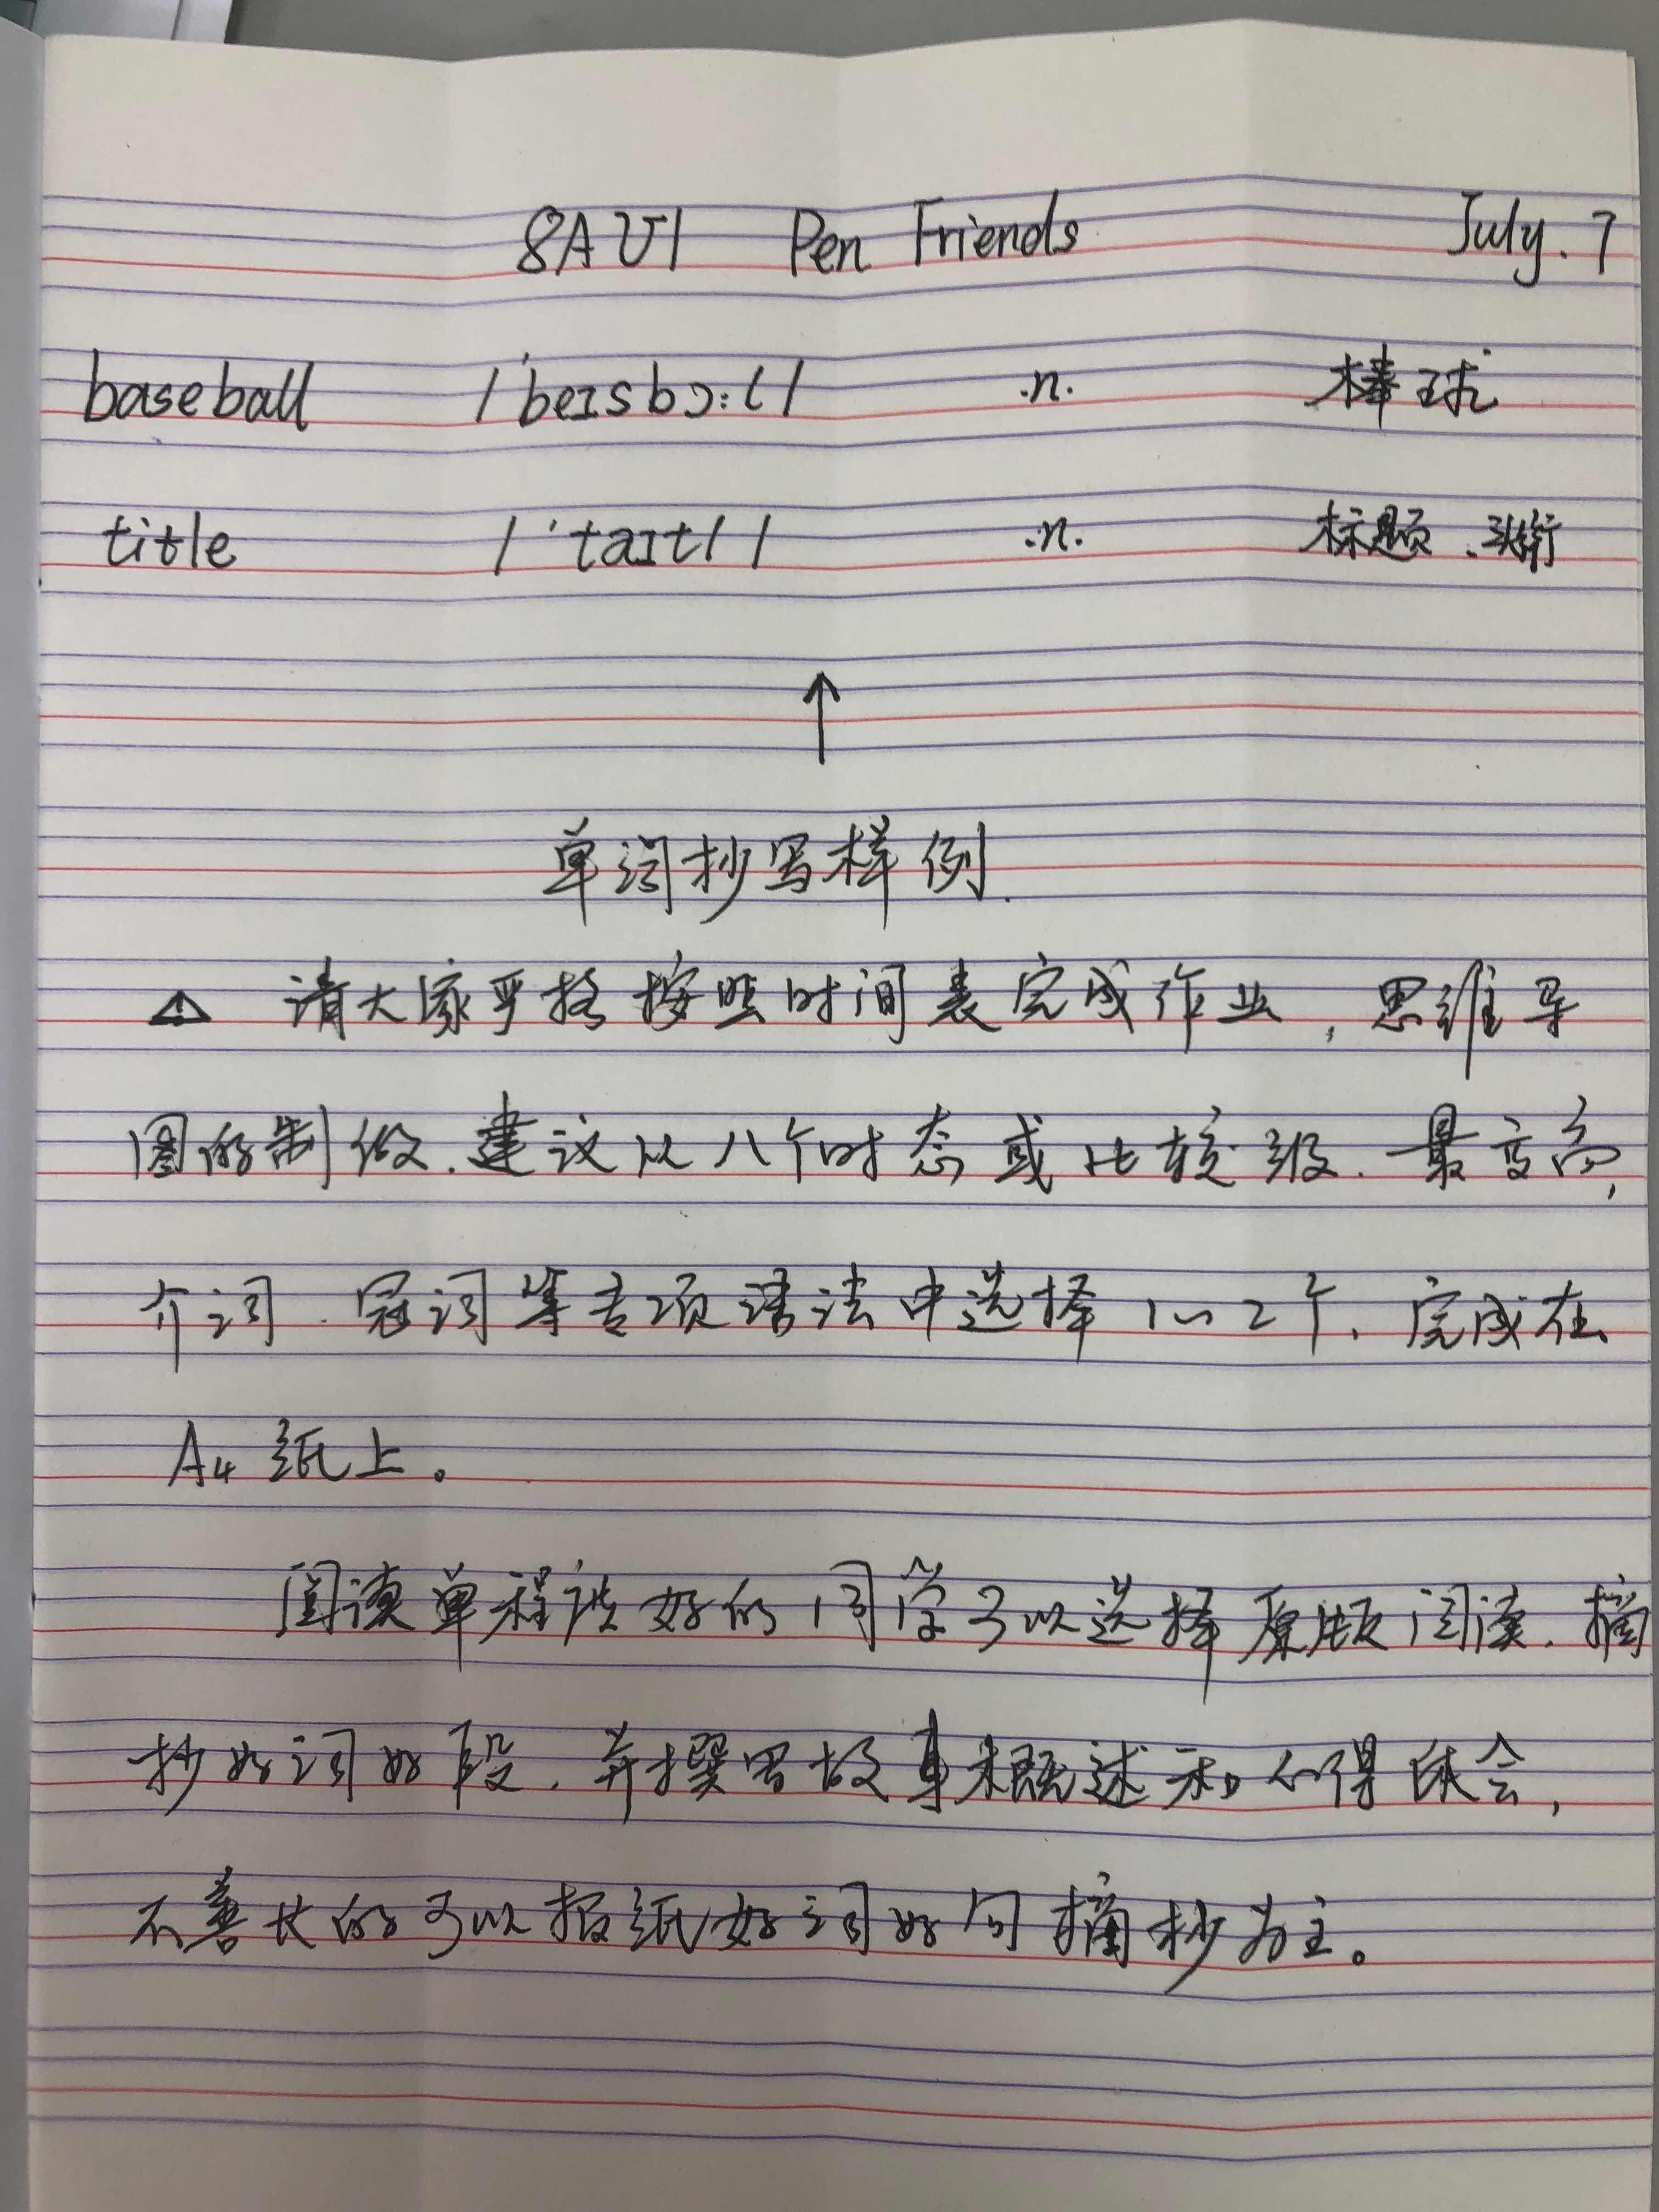 8A U1 Pen Friends July. 7
baseball /ˈbeɪsbɔːl/ n. 棒球
title /ˈtaɪtl/ n. 标题、头衔
↑
单词抄写样例.
⚠ 请大家严格按照时间表完成作业，思维导
图的制做、建议从八个时态或比较级、最高,
介词、冠词等专项语法中选择1~2个、完成在
A4纸上。
阅读单程度好的同学可以选择原版阅读、摘
抄好词好段、并撰写故事概述和心得体会，
不善长的可以报纸好词好句摘抄为主。